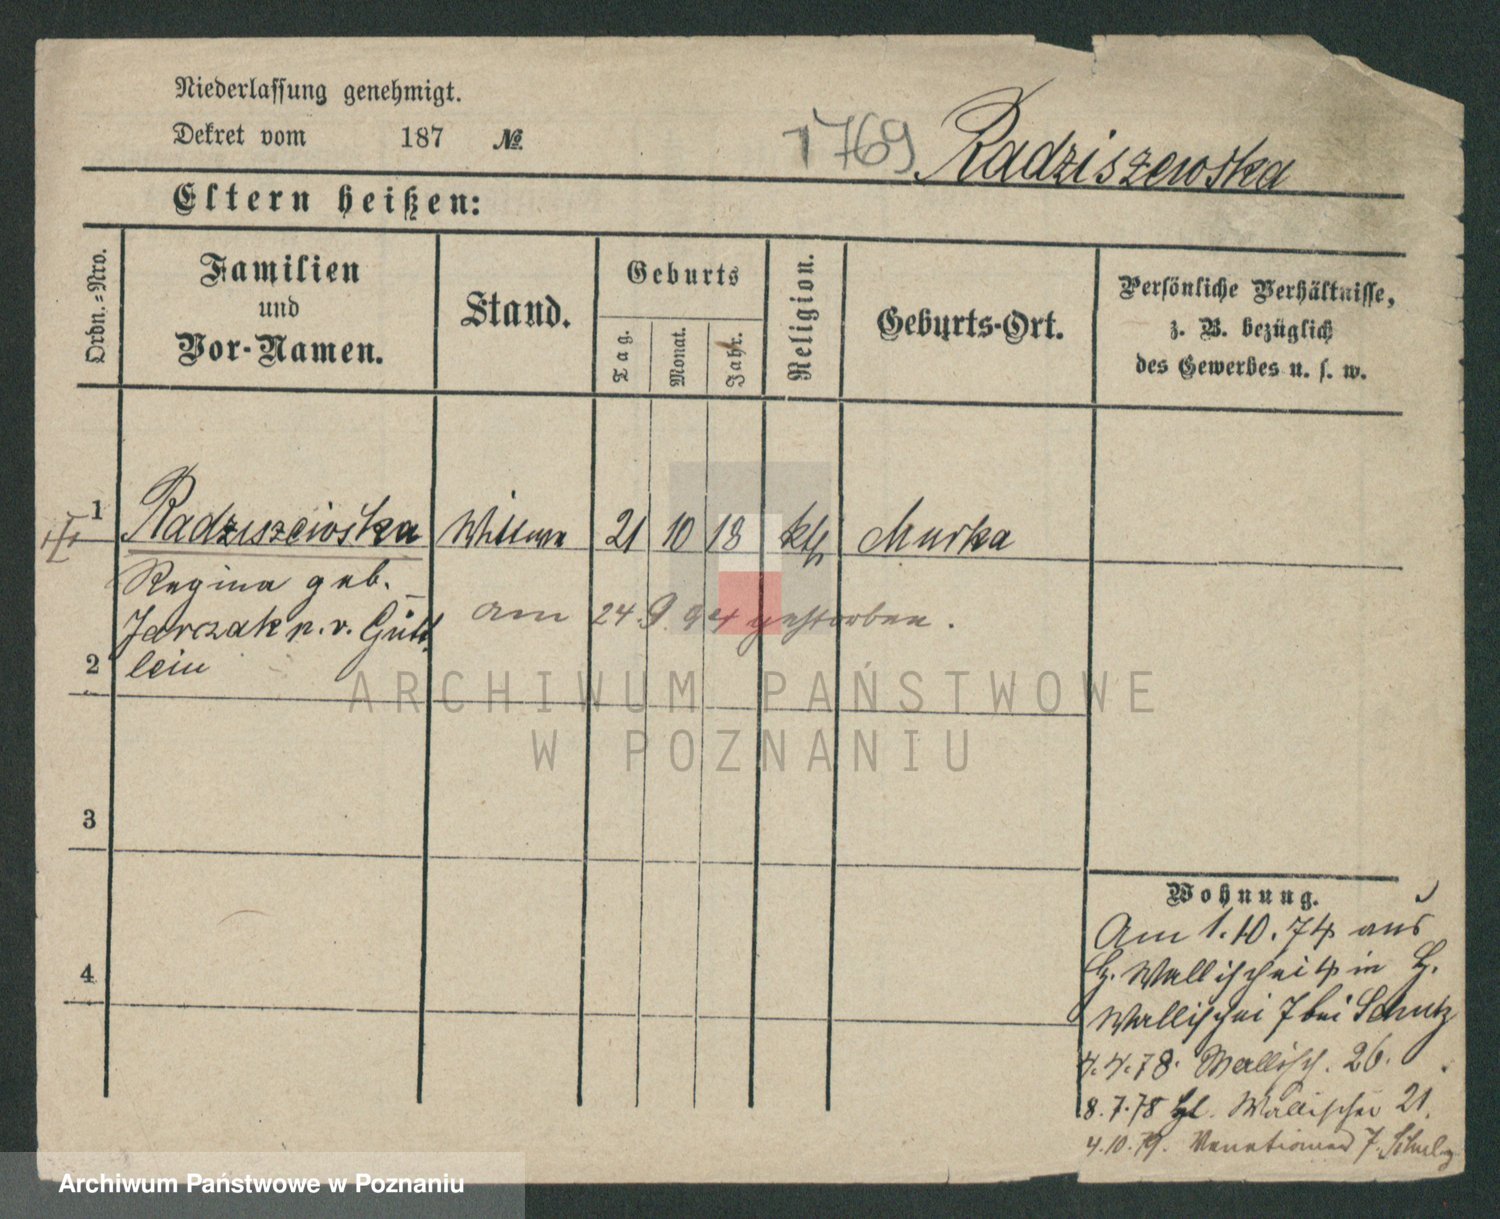 Niederlassung genehmigt.
Dekret vom 187 №
1769 Radziszewska
Eltern heißen:
Ordn.=Nro.
Familien
und
Vor-Namen.
Stand.
Geburts
Tag.
Monat.
Jahr.
Religion.
Geburts-Ort.
Persönliche Verhältnisse,
z. B. bezüglich
des Gewerbes u. s. w.
1 Radziszewska Wittwe 21 10 18 kth Murka
Regina geb.
Jarczak n. v. Gütt
lein
am 24.9.94 gestorben.
2
ARCHIWUM PAŃSTWOWE
W POZNANIU
3
4
Wohnung.
Am 1.10.74 aus
H. Wallischei 4 in H.
Wallischei 7 bei Schutz
4.4.78. Wallisch. 26.
8.7.78 Wallischei 21.
4.10.79. Venetianer 7.
Archiwum Państwowe w Poznaniu